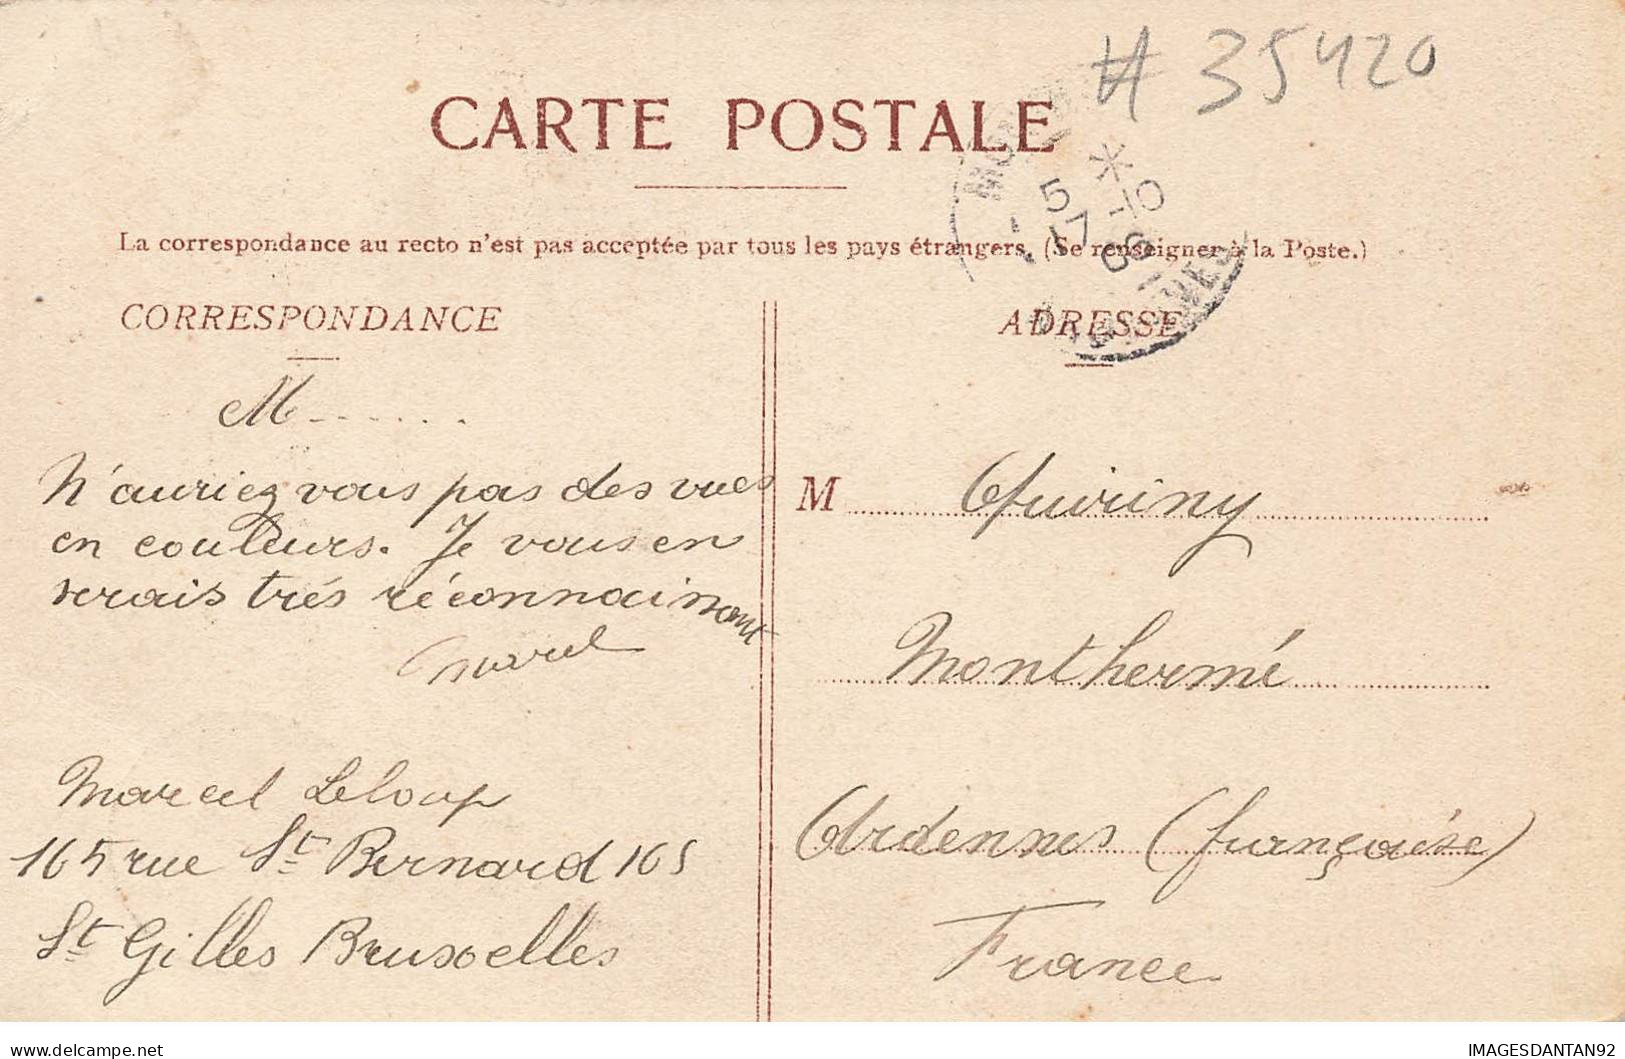 # 35420
CARTE POSTALE
5 * 17 -10 06
La correspondance au recto n'est pas acceptée par tous les pays étrangers. (Se renseigner à la Poste.)
CORRESPONDANCE
M......
N'auriez vous pas des vues
en couleurs. Je vous en
serais trés réconnaissant
Marcel
Marcel Leloup
165 rue St Bernard 165
St Gilles Bruxelles
ADRESSE
M Quiriny
Monthermé
Ardennes (françaíse)
France
delcampe.net
IMAGESDANTAN92